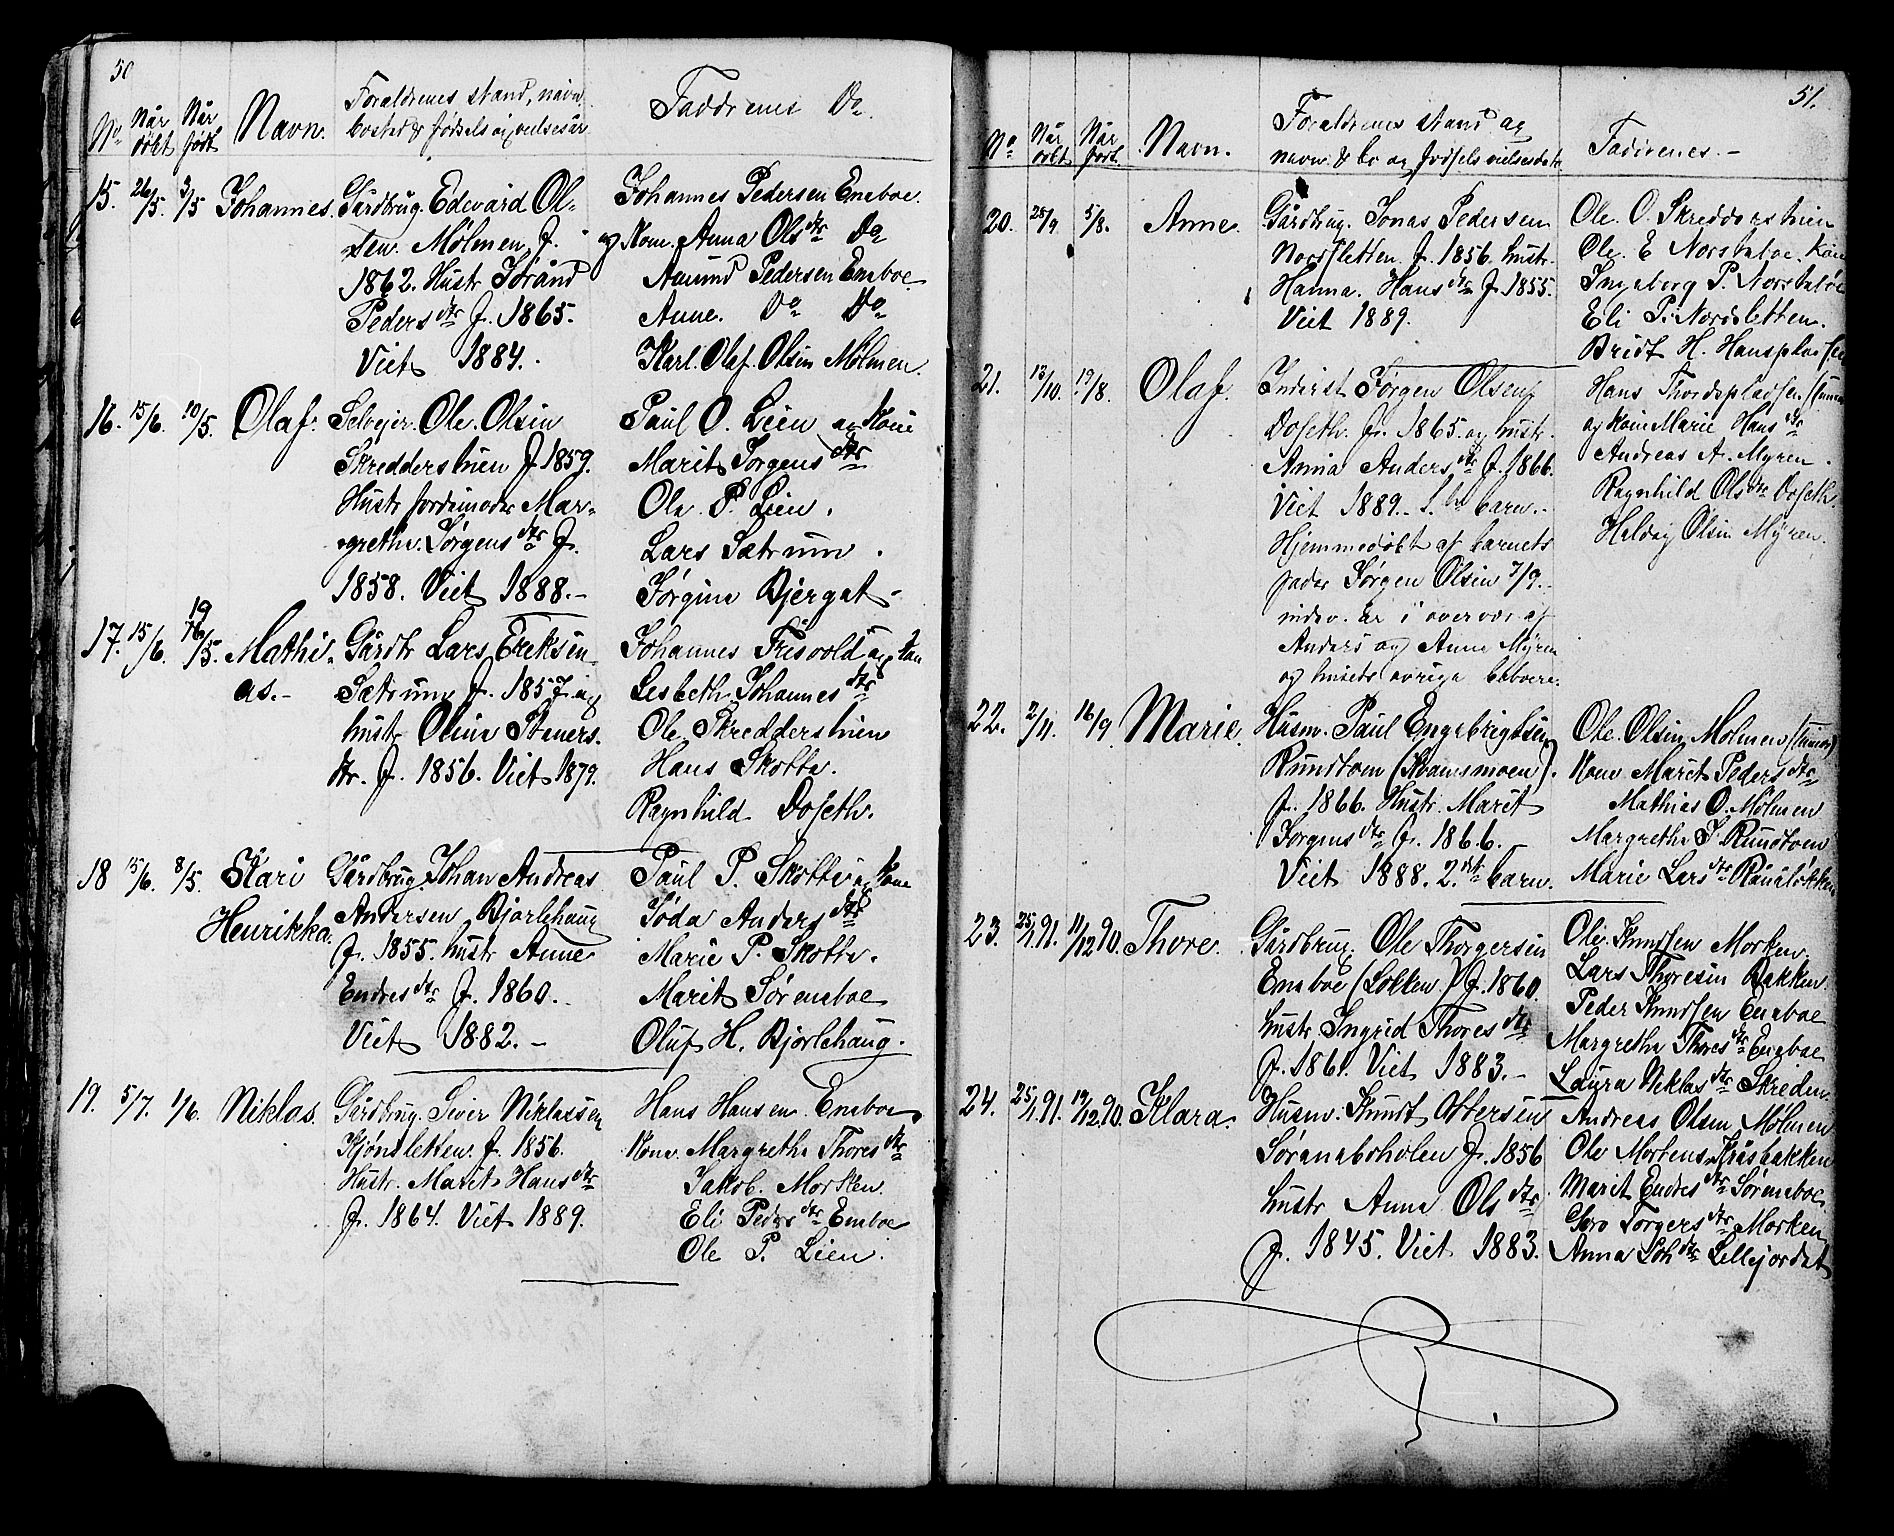 50
No Når døbt Når født Navn. Forældrenes stand, navn
bosted & fødsels og vielsesår
Faddrenes Do
15. 26/5. 3/5 Johannes. Gårdbrug. Edevard Ol-
sen Mølmen f.
1862. Hustr Jørånd
Pedersdtr f. 1865.
Viet 1884.
Johannes Pedersen Eneboe.
og Kone. Anna Olsdtr Do
Amund Pedersen Eneboe
Anne. Do Do
Karl Olaf Olsen Mølmen.
16. 15/6. 10/5. Olaf. Selvejer. Ole Olsen
Skredderstuen f 1859.
Hustr jordemoder Mar-
grethe Jørgensdtr f.
1858. Viet 1888.-
Paul O. Lien og Kone
Marit Jørgensdtr
Ole P. Lien.
Lars Sætrum.
Jørgine Bjergat-
19
17. 15/6. 16/5. Mathi-
as.-
Gårdbr Lars Ereksen
Sætrum f. 1857 og
hustr Oline Steners.
dtr. f. 1856. Viet 1879.
Johannes Frisvold og Kone
Lesbeth Johannesdtr
Ole Skredderstuen
Hans Skotte.
Ragnhild Doseth.
18 15/6. 8/5. Kari
Henrikka.
Gårdbrug. Johan Andreas
Andersen Bjorlehaug
f. 1855. hustr Anne
Endresdtr f. 1860.
Viet 1882.-
Paul P. Skotte og Kone
Jøda Andersdtr
Marie P. Skotte.
Marit Søreneboe
Oluf H. Bjorlehaug.
19. 5/7. 1/6. Niklas. Gårdbrug. Siver Niklassen
Kjønsletten. f. 1856.
Hustr. Marit Hansdtr
f. 1864. Viet 1889.
Hans Hansen Eneboe
Kone. Margrethe Thoresdtr
Jakob. Morken.
Eli Pedersdtr Eneboe
Ole P. Lien.
51.
No Når døbt Når født. Navn. Forældrenes stand og
navn & bo og fødsels vielsesdata
Faddrenes.-
20. 28/9 5/8. Anne. Gårdbrug. Jonas Pedersen
Nordsletten. f. 1856. hustr.
Hanna. Hansdtr f. 1855.
Viet 1889.
Ole. O. Skredderstuen
Ole. E Norsteboe. Kone
Ingeborg P. Norsteboe
Eli P. Nordsletten.
Bridt H. Hanspladsen
21. 13/10. 19/8. Olaf. Inderst Jørgen Olsen
Doseth. f. 1865. og hustr.
Anna Andersdtr f. 1866.
Viet 1889.
barn.
Hjemmedøbt af barnets
fader Jørgen Olsen 7/9.
i overvær af
Anders og Anne Myren
og husets øvrige beboere.
Hans Thordspladsen
og kone Marie Hansdtr
Andreas A. Myren.
Ragnhild Olsdtr Doseth.
Haldog Olsen Myren.
22. 2/11. 16/9 Marie. Husm. Paul Engebrigtsen
Rundtom (Kvamsmoen).
f. 1866. Hustr. Marit
Jørgensdtr f. 1866.
Viet 1888. 2. det barn.
Ole. Olsen Mølmen
Kone Marit Pedersdtr
Mathias O. Mølmen
Margrethe J. Rundtom
Marie Larsdtr Rånåløkken
23. 25/1 91. 11/12 90. Thore. Gårdbrug. Ole Thorgersen
Eneboe (Løkken) f. 1860.
hustr Ingrid Thoresdtr
f. 1861. Viet 1883.-
Ole. Knudsen Morken.
Lars Thoresen Bakken
Peder Knudsen Eneboe
Margrethe Thoresdtr Eneboe
Laura Niklasdtr Skreden.
24. 25/1 91. 19/12 90. Klara. Husm. Knudt Ottersen
Søraneboholen f. 1856
hustr Anna Olsdtr
f. 1845. Viet 1883.
Andreas Olsen Mølmen
Ole Mortens. Kråsbakken
Marit Endresdtr Søreneboe
Goro Torgersdtr Morken
Anna Johdtr Lellejordet